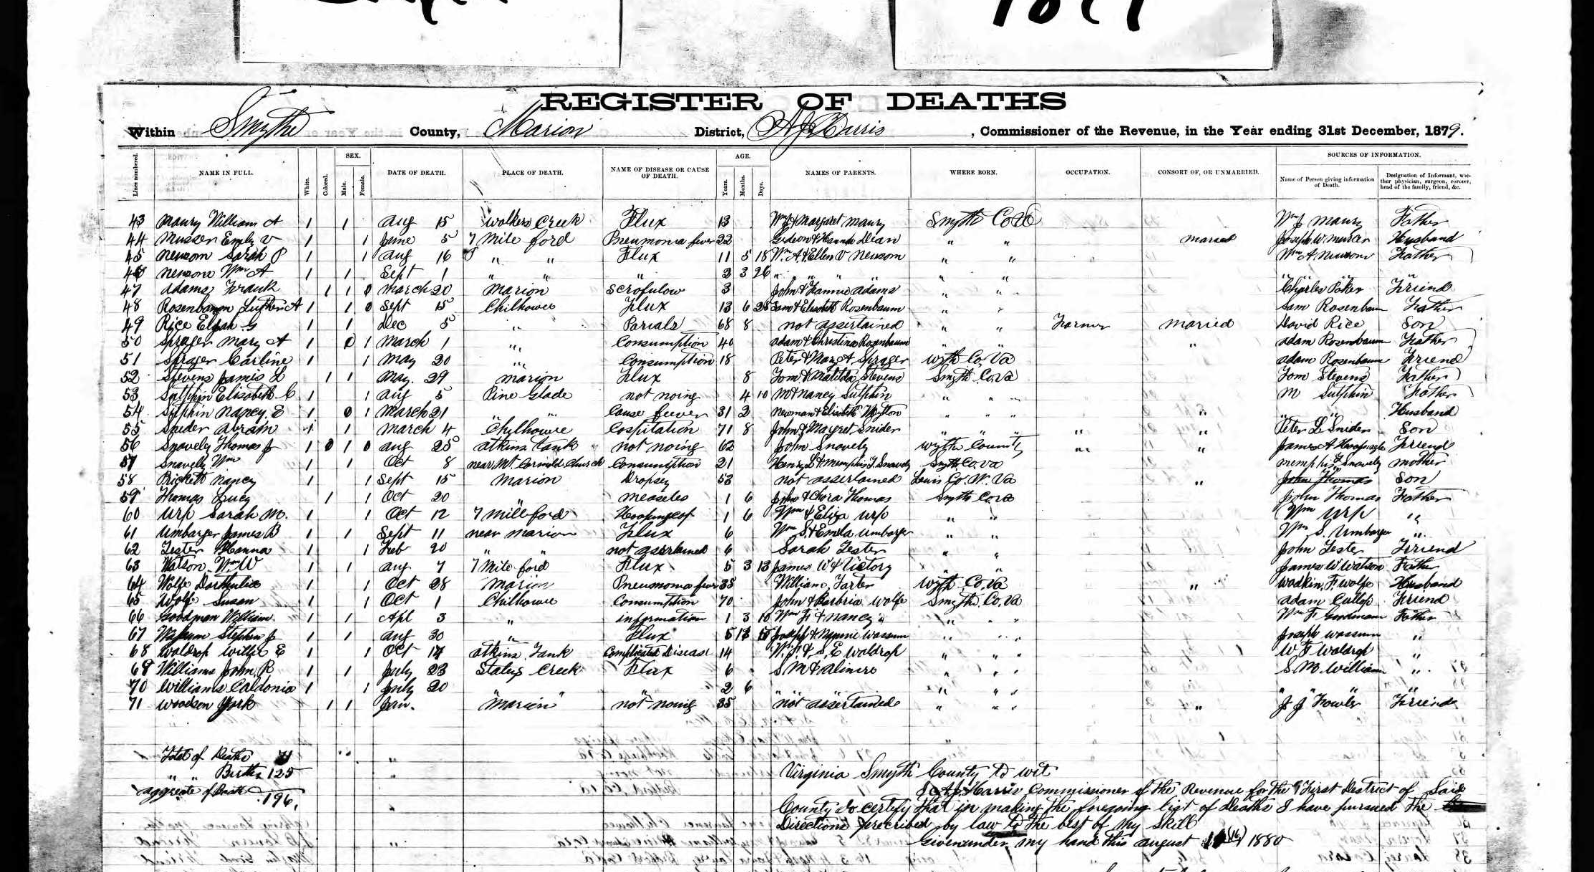 1879
REGISTER OF DEATHS
Within Smythe County, Marion District, A J Harris, Commissioner of the Revenue, in the Year ending 31st December, 1879.
Lines numbered. NAME IN FULL. White. Colored. SEX. Male. Female. DATE OF DEATH. PLACE OF DEATH. NAME OF DISEASE OR CAUSE OF DEATH. AGE. Years. Months. Days. NAMES OF PARENTS. WHERE BORN. OCCUPATION. CONSORT OF, OR UNMARRIED. SOURCES OF INFORMATION. Name of Person giving information of Death. Designation of Informant, whether physician, surgeon, coroner, head of the family, friend, &c.
43 Maury William A 1 1 Aug 15 Walkers Creek Flux 13 Wm J & Margaret Maury Smyth Co Va Wm J Maury Father
44 Musser Emly V 1 1 June 5 7 Mile ford Pneumonia fever 22 Gideon & Hannah Dean " " married Joseph W. Musser Husband
45 Newsom Sarah P 1 1 Aug 16 " " Flux 11 5 18 Wm A & Ellen V Newsom " " Wm A Newsom Father
46 Newsom Wm A 1 1 Sept 1 " " " 2 3 26 " " " " " "
47 Adams Frank 1 1 March 20 Marion Scrofulow 3 John & Fannie Adams " " Charles Friend
48 Rosenbaum Luther A 1 1 Sept 15 Chilhowie Flux 13 6 28 Sam & Elisabeth Rosenbaum " " Sam Rosenbaum Father
49 Rice Elijah G 1 1 Dec 5 " Parials 68 8 not assertained " " Farmer Married David Rice Son
50 Sprager Mary A 1 March 1 " Consumption 40 Adam & Christina Rosenbaum " " " Adam Rosenbaum Father
51 Sprager Carline 1 1 May 20 " Consumption 18 Peter & Mary A. Sprager Wyth Co Va Adam Rosenbaum Friend
52 Stevens James L 1 1 May 29 Marion Flux 8 Tom & Matilda Stevens Smyth Co Va Tom Stevens Father
53 Sulphin Elisabeth C 1 1 Aug 5 Pine Glade not noing 4 10 M & Nancy Sulphin " " M Sulphin Father
54 Sulphin Nancy E 1 March 21 " Cause fever 31 2 " " " " Husband
55 Snider Abram 1 1 March 4 Chilhowie 71 8 John & Margret Snider " " " " Peter L Snider Son
56 Snavely Thomas J 1 1 Aug 25 Atkins Tank not noing 62 John Snavely Wyth County " " James A Friend
57 Snavely Wm 1 1 Oct 8 near Mt Church Consumption 21 Henry & Memphis J. Snavely Smyth Co. Va Memphis J Snavely mother
58 Prickett Nancy 1 1 Sept 15 Marion Dropsey 53 not assertained Lewis Co. W. Va " John Thomas Son
59 Thomas Lucy 1 1 Oct 20 " Measeles 1 6 John & Cora Thomas Smyth Co Va John Thomas Father
60 Urp Sarah M. 1 1 Oct 12 7 Mill ford Hoopingcof 1 6 Wm & Eliza Urp " " Wm Urp "
61 Umbarger James B 1 1 Sept 11 near Marion Flux 6 Wm S & Emla Umbarger " " Wm S. Umbarger "
62 Tester Hanna 1 1 Feb 20 " not assertained 6 Sarah Tester " " John Tester Friend
63 Watson Wm W 1 1 Aug 7 7 Mile ford Flux 5 3 13 James W & Victory " " James W Watson Father
64 Wolfe 1 1 Oct 28 Marion Pneumonia fever 38 William Tarter Wyth Co Va " F Wolfe Husband
65 Wolfe Susan 1 1 Oct 1 Chilhowie Consumption 70 John & Barbria Wolfe Smyth Co, Va Adam Cullop Friend
66 Goodman William 1 1 Apl 3 " information 1 3 10 Wm F & Nancy " " " Wm F. Goodman Father
67 Wassum Stephen J 1 1 Aug 30 " Flux 5 Joseph & Wassum " " Joseph Wassum "
68 Waldrop Willie E 1 1 Oct 14 Atkins Tank Complicated Disease 14 W. F. & S. E Waldrop " " W F Waldrop "
69 Williams John R 1 1 July 23 Staleys Creek Flux 6 S M & Almira " " S. M. William "
70 Williams Caldonia 1 1 July 20 " " " 2 6 " " " " " " "
71 Woodson York 1 1 Jan. "Marion" not noing 35 not assertained " " " J J Fowler Friend
Total of Deaths 71
" " Births 125
aggregate of both 196,
Virginia Smyth County to wit
I A J Harris Commissioner of the Revenue for the First District of Said
County do certify that in making the foregoing list of Deaths I have pursued the
Directions prescribed by law to the best of my skill
Given under my hand this August (16) 1880